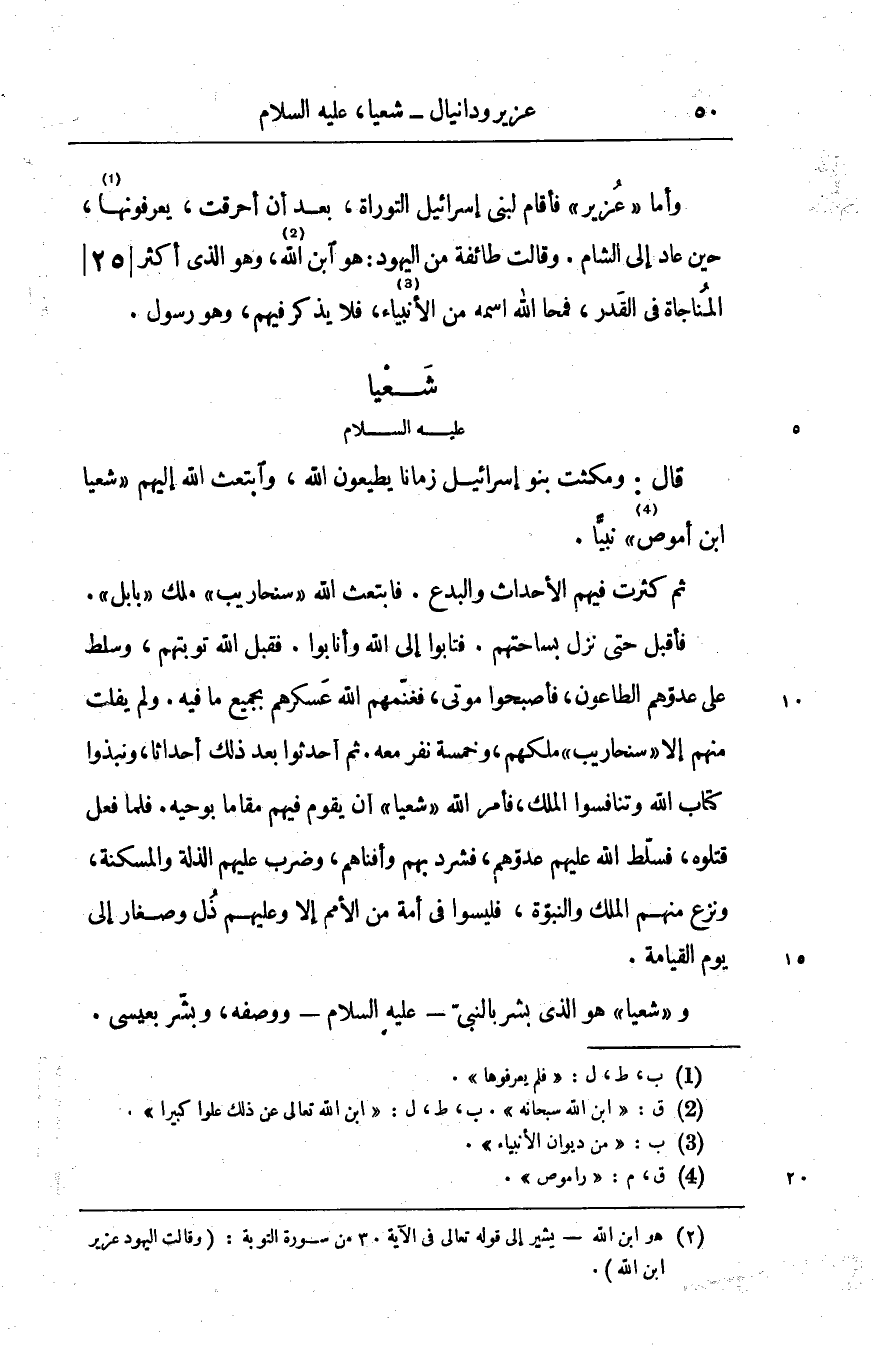 ٥٠ عزير ودانيال – شعياء عليه السلام
وأما «عُزير» فأقام لبنى إسرائيل التوراة ، بعـد أن أحرقت ، يعرفونهـا(1) ،
حين عاد إلى الشام . وقالت طائفة من اليهود : هو آبن الله(2)، وهو الذى أكثر |٢٥|
المُناجاة فى القَدر ، فمحا الله اسمه من الأنبياء(3)، فلا يذكر فيهم، وهو رسول .
شَـعْيا
٥ عليـه السـلام
قال : ومكثت بنو إسرائيـل زمانا يطيعون الله ، وآبتعث الله إليهم «شعيا
ابن أموص»(4) نبيًّا .
ثم كثرت فيهم الأحداث والبدع . فابتعث الله «سنحاريب» ملك «بابل».
فأقبل حتى نزل بساحتهم . فتابوا إلى الله وأنابوا . فقبل الله توبتهم ، وسلط
١٠ على عدوّهم الطاعون، فأصبحوا موتى، فغنّمهم الله عَسكرهم بجميع ما فيه . ولم يفلت
منهم إلا «سنحاريب» ملكهم، وخمسة نفر معه. ثم أحدثوا بعد ذلك أحداثا، ونبذوا
كتاب الله وتنافسوا الملك، فأمر الله «شعيا» أن يقوم فيهم مقاما بوحيه. فلما فعل
قتلوه، فسلّط الله عليهم عدوّهم، فشرد بهم وأفناهم، وضرب عليهم الذلة والمسكنة،
ونزع منهـم الملك والنبوّة ، فليسوا فى أمة من الأمم إلا وعليهـم ذُل وصـغار إلى
١٥ يوم القيامة .
و «شعيا» هو الذى بشر بالنبىّ – عليه السلام – ووصفه، وبشّر بعيسى .
(1) ب، ط، ل : « فلم يعرفوها » .
(2) ق : « ابن الله سبحانه » . ب، ط، ل : « ابن الله تعالى عن ذلك علوا كبيرا » .
(3) ب : « من ديوان الأنبياء » .
٢٠ (4) ق، م : « راموص » .
(٢) هو ابن الله – يشير إلى قوله تعالى فى الآية ٣٠ من سـورة التوبة : ( وقالت اليهود عزير
ابن الله ) .